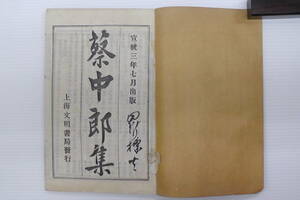 宣統三年七月出版
蔡中郎集
上海文明書局發行